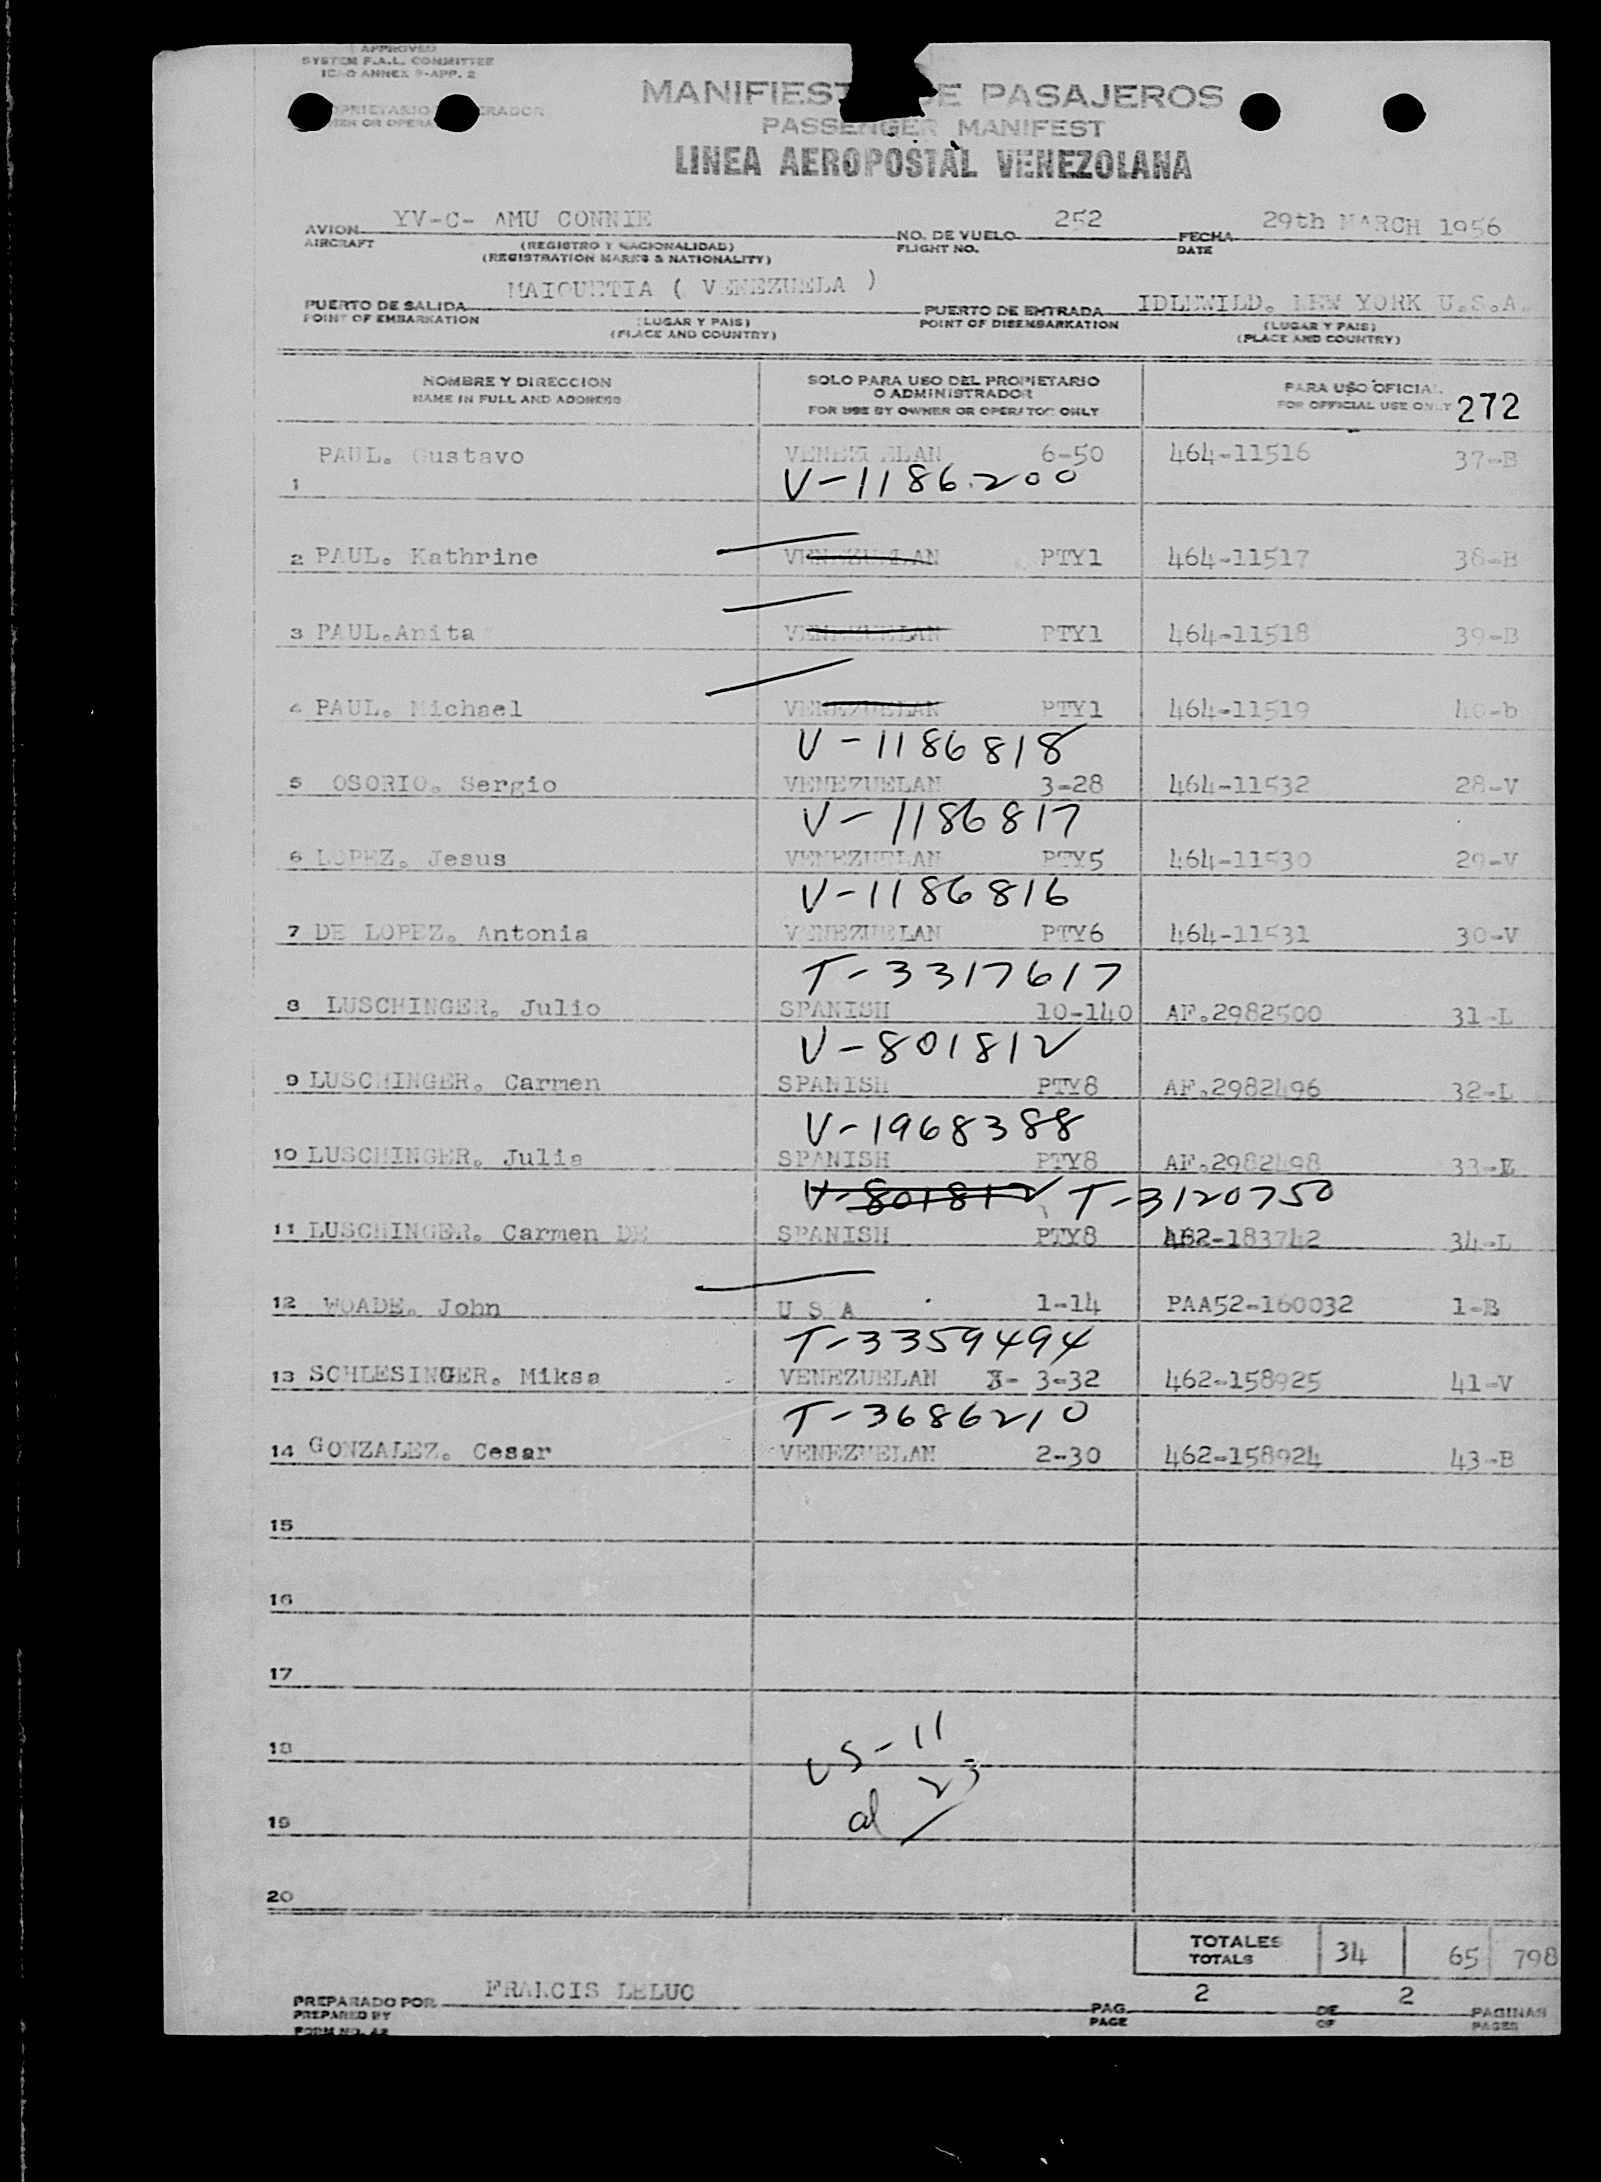 APPROVED
SYSTEM F.A.L. COMMITTEE
ICAO ANNEX 9-APP. 2
MANIFIEST DE PASAJEROS
PASSENGER MANIFEST
LINEA AEROPOSTAL VENEZOLANA
AVION YV-C- AMU CONNIE NO. DE VUELO 252 FECHA 29th MARCH 1956
AIRCRAFT (REGISTRO Y NACIONALIDAD) FLIGHT NO. DATE
(REGISTRATION MARKS & NATIONALITY)
PUERTO DE SALIDA MAIQUETIA ( VENEZUELA ) PUERTO DE ENTRADA IDLEWILD. NEW YORK U.S.A.
POINT OF EMBARKATION (LUGAR Y PAIS) POINT OF DISEMBARKATION (LUGAR Y PAIS)
(PLACE AND COUNTRY) (PLACE AND COUNTRY)
NOMBRE Y DIRECCION SOLO PARA USO DEL PROPIETARIO PARA USO OFICIAL
NAME IN FULL AND ADDRESS O ADMINISTRADOR FOR OFFICIAL USE ONLY 272
FOR USE BY OWNER OR OPERATOR ONLY
PAUL. Gustavo VENEZUELAN 6-50 464-11516 37-B
1 V-1186.200
2 PAUL. Kathrine VENEZUELAN PTY1 464-11517 38-B
3 PAUL.Anita VENEZUELAN PTY1 464-11518 39-B
4 PAUL. Michael VENEZUELAN PTY1 464-11519 40-b
V-1186818
5 OSORIO. Sergio VENEZUELAN 3-28 464-11532 28-V
V-1186817
6 LOPEZ. Jesus VENEZUELAN PTY5 464-11530 29-V
V-1186816
7 DE LOPEZ. Antonia VENEZUELAN PTY6 464-11531 30-V
T-3317617
8 LUSCHINGER. Julio SPANISH 10-140 AF.2982500 31-L
V-801812
9 LUSCHINGER. Carmen SPANISH PTY8 AF.2982496 32-L
V-1968388
10 LUSCHINGER. Julia SPANISH PTY8 AF.2982498 33-L
V-801812 T-3120750
11 LUSCHINGER. Carmen DE SPANISH PTY8 462-183742 34-L
12 WOADE. John U S A 1-14 PAA52-160032 1-B
T-3359494
13 SCHLESINGER. Miksa VENEZUELAN 3-32 462-158925 41-V
T-3686210
14 GONZALEZ. Cesar VENEZUELAN 2-30 462-158924 43-B
15
16
17
18 US-11
19 al 23
20
TOTALES 34 65 798
TOTALS
PREPARADO POR FRANCIS LELUC PAG. 2 DE 2 PAGINAS
PREPARED BY PAGE OF PAGES
FORM NO. 42